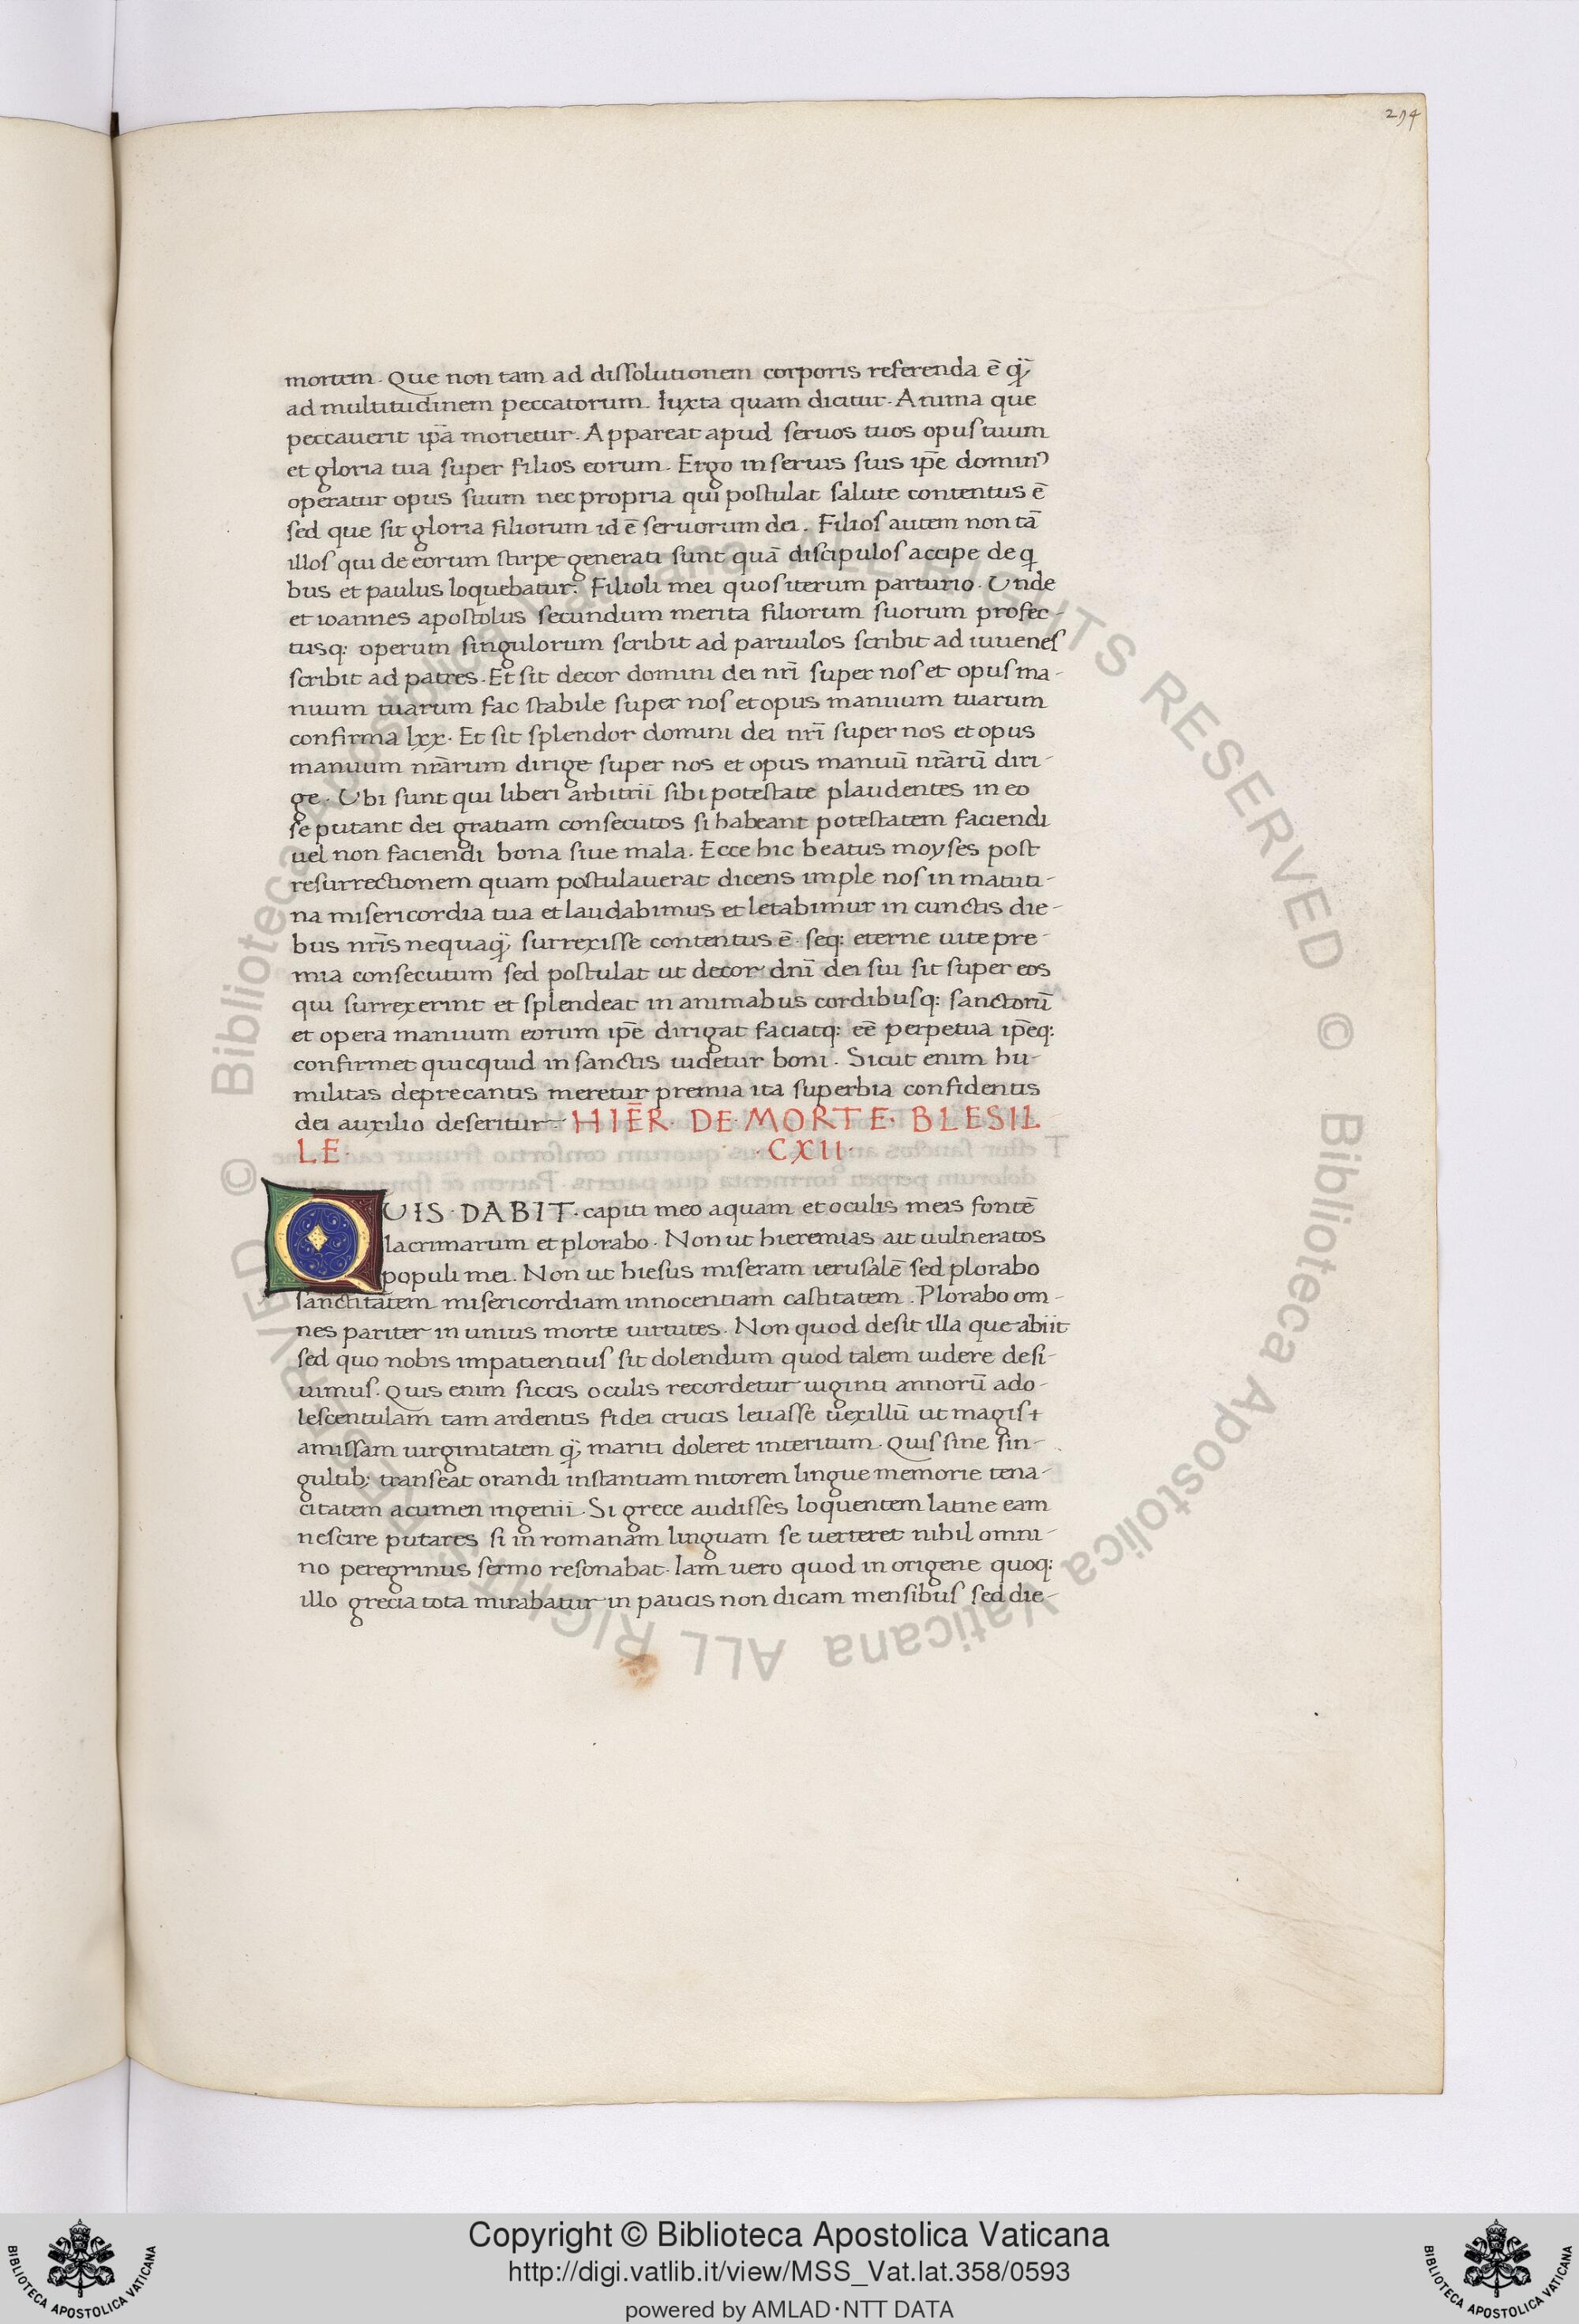 294
mortem. Que non tam ad dissolutionem corporis referenda ē q̃
ad multitudinem peccatorum. Iuxta quam dicitur. Anima que
peccauerit ip̄a morietur. Appareat apud seruos tuos opus tuum
et gloria tua super filios eorum. Ergo in seruis suis ip̄e dominꝰ
operatur opus suum nec propria qui postulat salute contentus ē
sed que sit gloria filiorum id ē seruorum dei. Filios autem non tā
illos qui de eorum stirpe generati sunt quā discipulos accipe de q
bus et paulus loquebatur. Filioli mei quos iterum parturio. Unde
et ioannes apostolus secundum merita filiorum suorum profec-
tusq: operum singulorum scribit ad paruulos scribit ad iuuenes
scribit ad patres. Et sit decor domini dei nr̄i super nos et opus ma-
nuum tuarum fac stabile super nos et opus manuum tuarum
confirma lxx. Et sit splendor domini dei nr̄i super nos et opus
manuum nr̄arum dirige super nos et opus manuū nr̄arū diri-
ge. Ubi sunt qui liberi arbitrii sibi potestate plaudentes in eo
se putant dei gratiam consecutos si habeant potestatem faciendi
uel non faciendi bona siue mala. Ecce hic beatus moyses post
resurrectionem quam postulauerat dicens imple nos in matuti-
na misericordia tua et laudabimus et letabimur in cunctis die-
bus nr̄is nequaq̃ surrexisse contentus ē. seq: eterne uite pre-
mia consecutum sed postulat ut decor dn̄i dei sui sit super eos
qui surrexerint et splendeat in animabus cordibusq: sanctorū
et opera manuum eorum ip̄e dirigat faciatq: eē perpetua ip̄eq:
confirmet quicquid in sanctis uidetur boni. Sicut enim hu-
militas deprecantis meretur premia ita superbia confidentis
dei auxilio deseritur- HIĒR. DE. MORTE. BLESIL
LE. .CXII.
QUIS. DABIT. capiti meo aquam et oculis meis fontē
lacrimarum et plorabo. Non ut hieremias ait uulneratos
populi mei. Non ut hiesus miseram ierusalē sed plorabo
sanctitatem misericordiam innocentiam castitatem. Plorabo om-
nes pariter in unius morte uirtutes. Non quod desit illa que abiit
sed quo nobis impatientius sit dolendum quod talem uidere desi-
uimus. Quis enim siccis oculis recordetur uiginti annorū ado-
lescentulam tam ardentis fidei crucis leuasse uexillū ut magis
amissam uirginitatem q̃ mariti doleret interitum. Quis sine sin-
gultib; transeat orandi instantiam nitorem lingue memorie tena-
citatem acumen ingenii. Si grece audisses loquentem latine eam
nescire putares si in romanam linguam se uerteret nihil omni-
no peregrinus sermo resonabat. Iam uero quod in origene quoq:
illo grecia tota mirabatur in paucis non dicam mensibus sed die-
© Biblioteca Apostolica Vaticana ALL RIGHTS RESERVED © Biblioteca Apostolica Vaticana ALL RIGHTS RESERVED
Copyright © Biblioteca Apostolica Vaticana
http://digi.vatlib.it/view/MSS_Vat.lat.358/0593
powered by AMLAD·NTT DATA
BIBLIOTECA APOSTOLICA VATICANA
BIBLIOTECA APOSTOLICA VATICANA